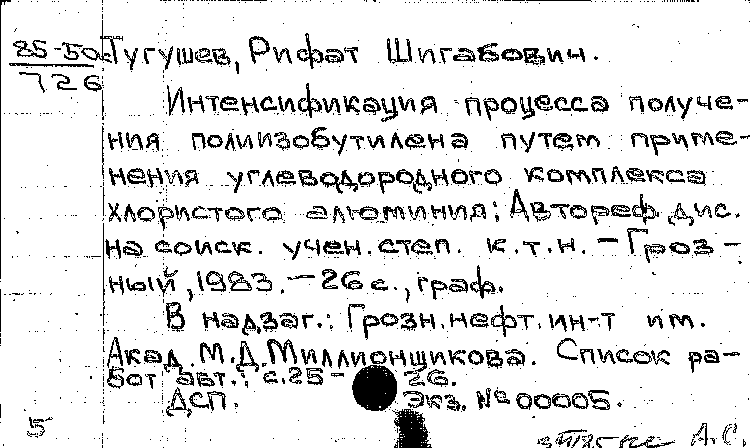 85-50
726
Тугушев, Рифат Шигабович.
Интенсификация процесса получе-
ния полиизобутилена путем приме-
нения углеводородного комплекса
хлористого алюминия: Автореф. дис.
на соиск. учен. степ. к.т.н. – Гроз-
ный, 1983. – 26 с., граф.
В надзаг.: Грозн. нефт. ин-т им.
Акад. М.Д. Миллионщикова. Список ра-
бот авт.: с. 25 – 26.
ДСП. Экз. № 00005.
5 А.С.